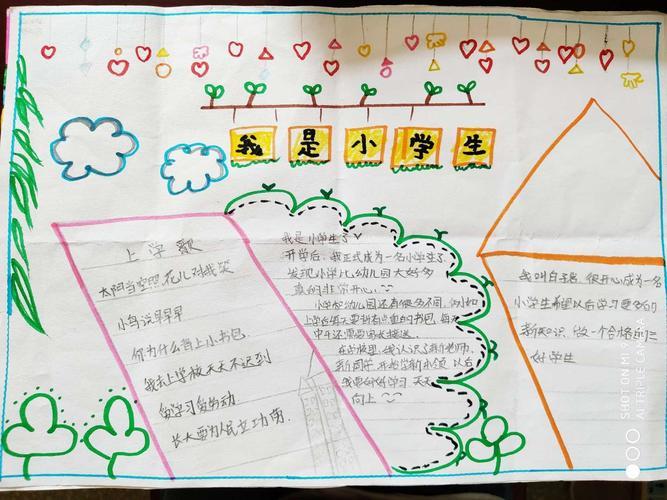 我是小学生
上学歌
太阳当空照,花儿对我笑
小鸟说早早早
你为什么背上小书包
我去上学校天天不迟到
爱学习爱劳动
长大要为人民立功劳.
我是小学生了
开学后,我正式成为一名小学生了
发现小学比幼儿园大好多
真的非常开心
小学和幼儿园还有很多不同,例如
上学每天要背着点重的书包,每天
中午还需要家长接送.
在学校里,我认识了新老师、
新同学,开始学新本领,以后
我要好好学习,天天
向上
我叫白子 很开心成为一名
小学生希望以后学习更多的
新知识,做一个合格的三
好学生
SHOT ON MI 9
AI TRIPLE CAMERA